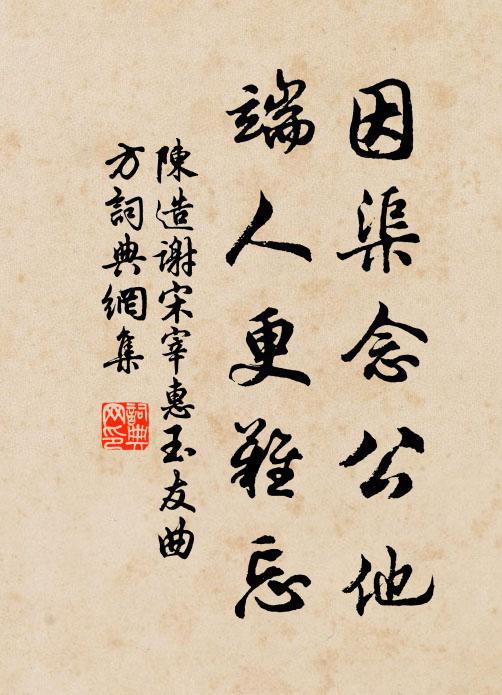 因渠念公他
端人更難忘
陳造謝宋宰惠玉友曲
方詞典網集
詞典
网印